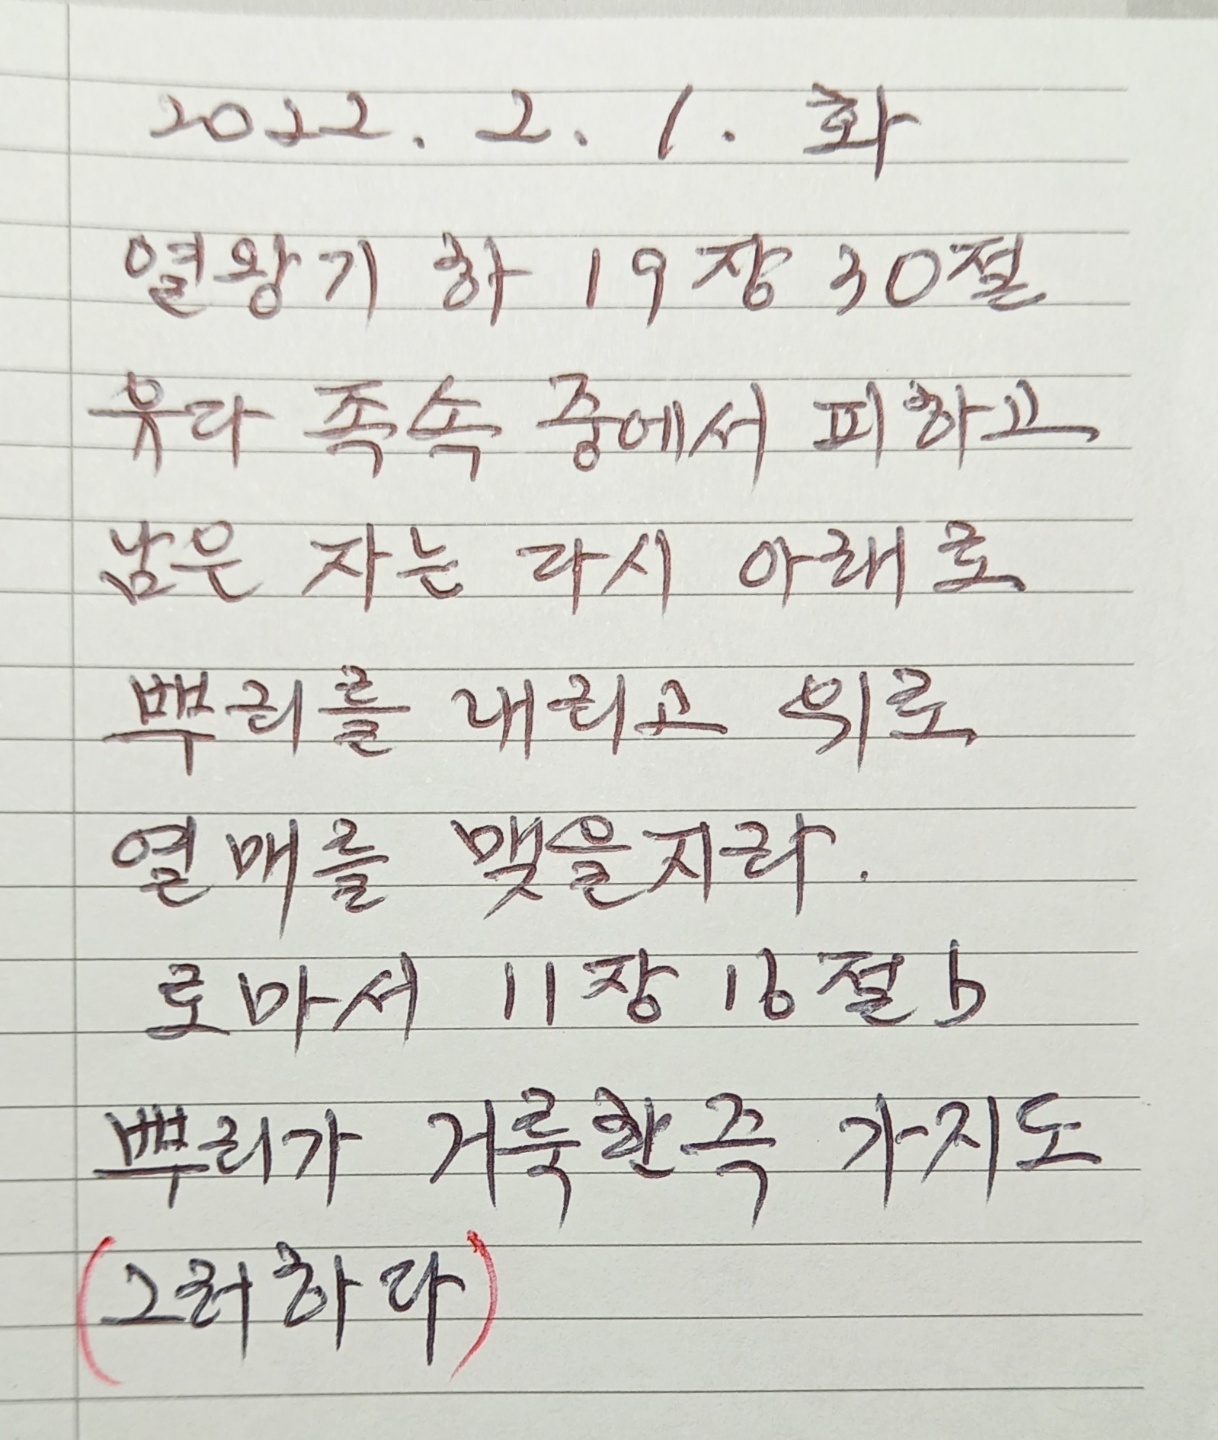 2022. 2. 1. 화
열왕기 하 19장 30절
유다 족속 중에서 피하고
남은 자는 다시 아래로
뿌리를 내리고 위로
열매를 맺을지라.
로마서 11장 16절 b
뿌리가 거룩한즉 가지도
(그러하다)